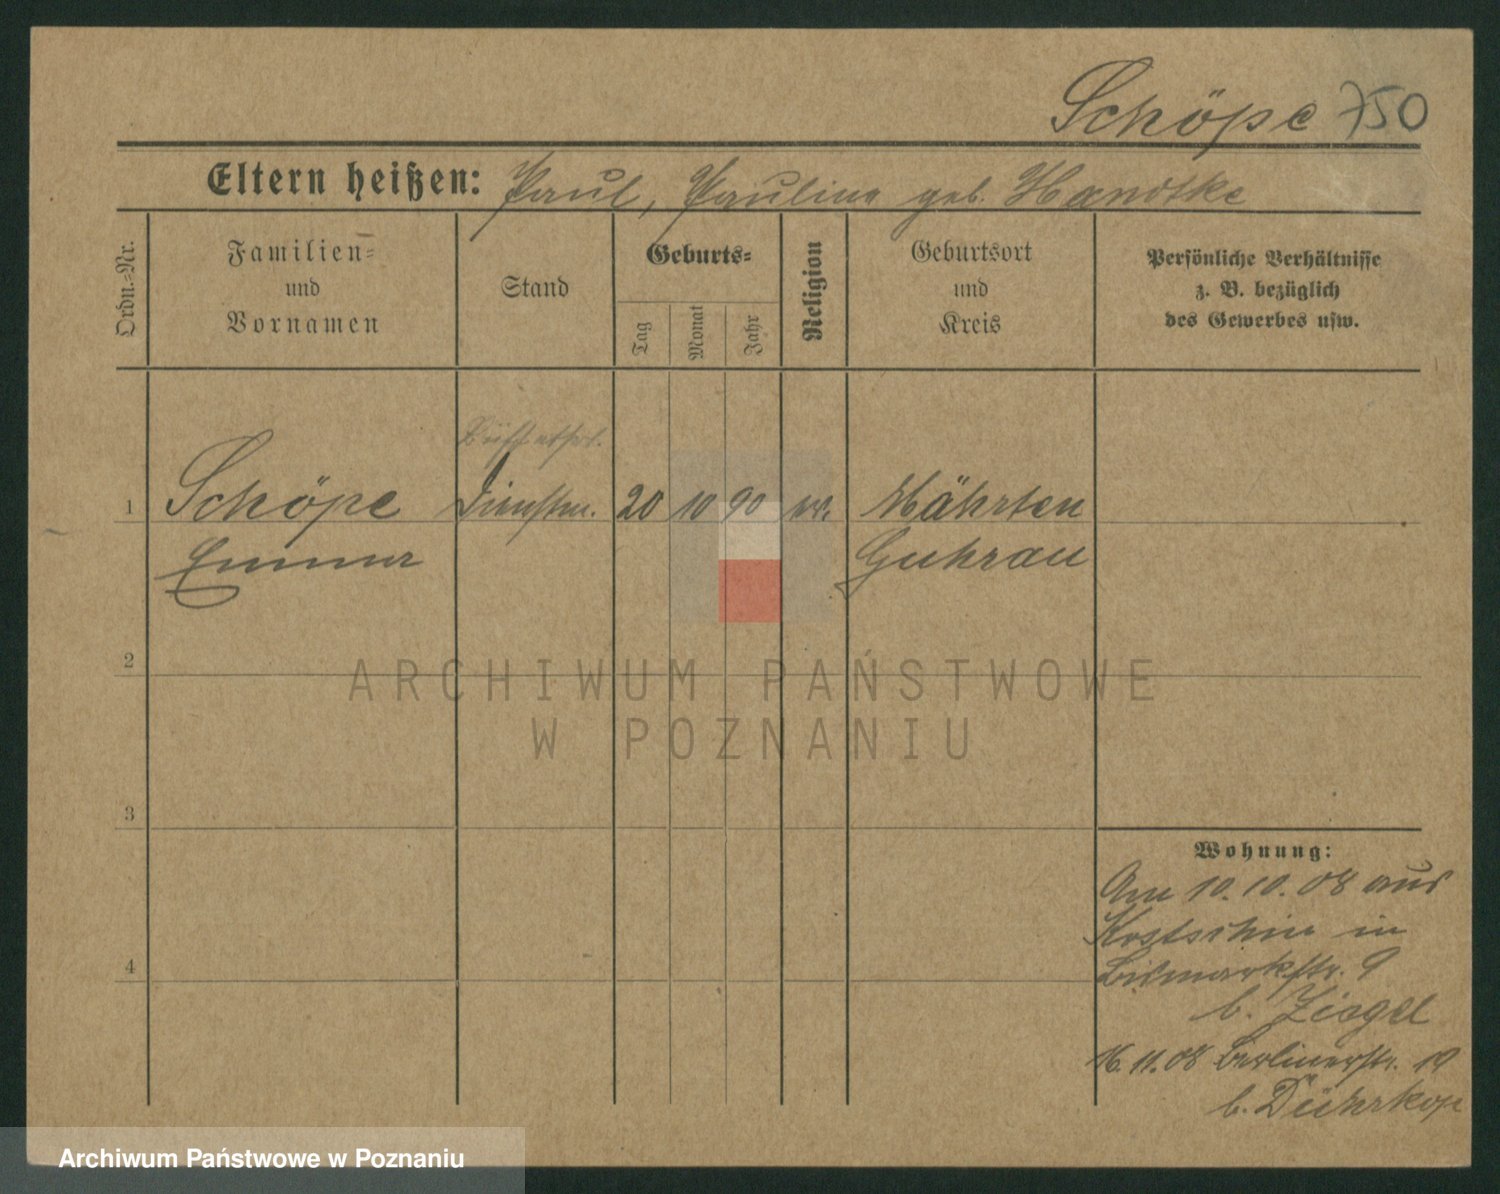 Schöpe 750
Eltern heißen: Paul, Pauline geb. Handtke
Ordn.-Nr.
Familien-
und
Vornamen
Stand
Geburts-
Tag
Monat
Jahr
Religion
Geburtsort
und
Kreis
Persönliche Verhältnisse
z. B. bezüglich
des Gewerbes usw.
Büffetfrl.
1 Schöpe Dienstm. 20 10 90 ev. Mährten
Emma Guhrau
2
3
4
Wohnung:
Am 10.10.08 aus
Kostschin in
Bismarkstr. 9
b. Ziegel
16.11.08 Berlinerstr. 19
b. Dührkop
ARCHIWUM PAŃSTWOWE
W POZNANIU
Archiwum Państwowe w Poznaniu